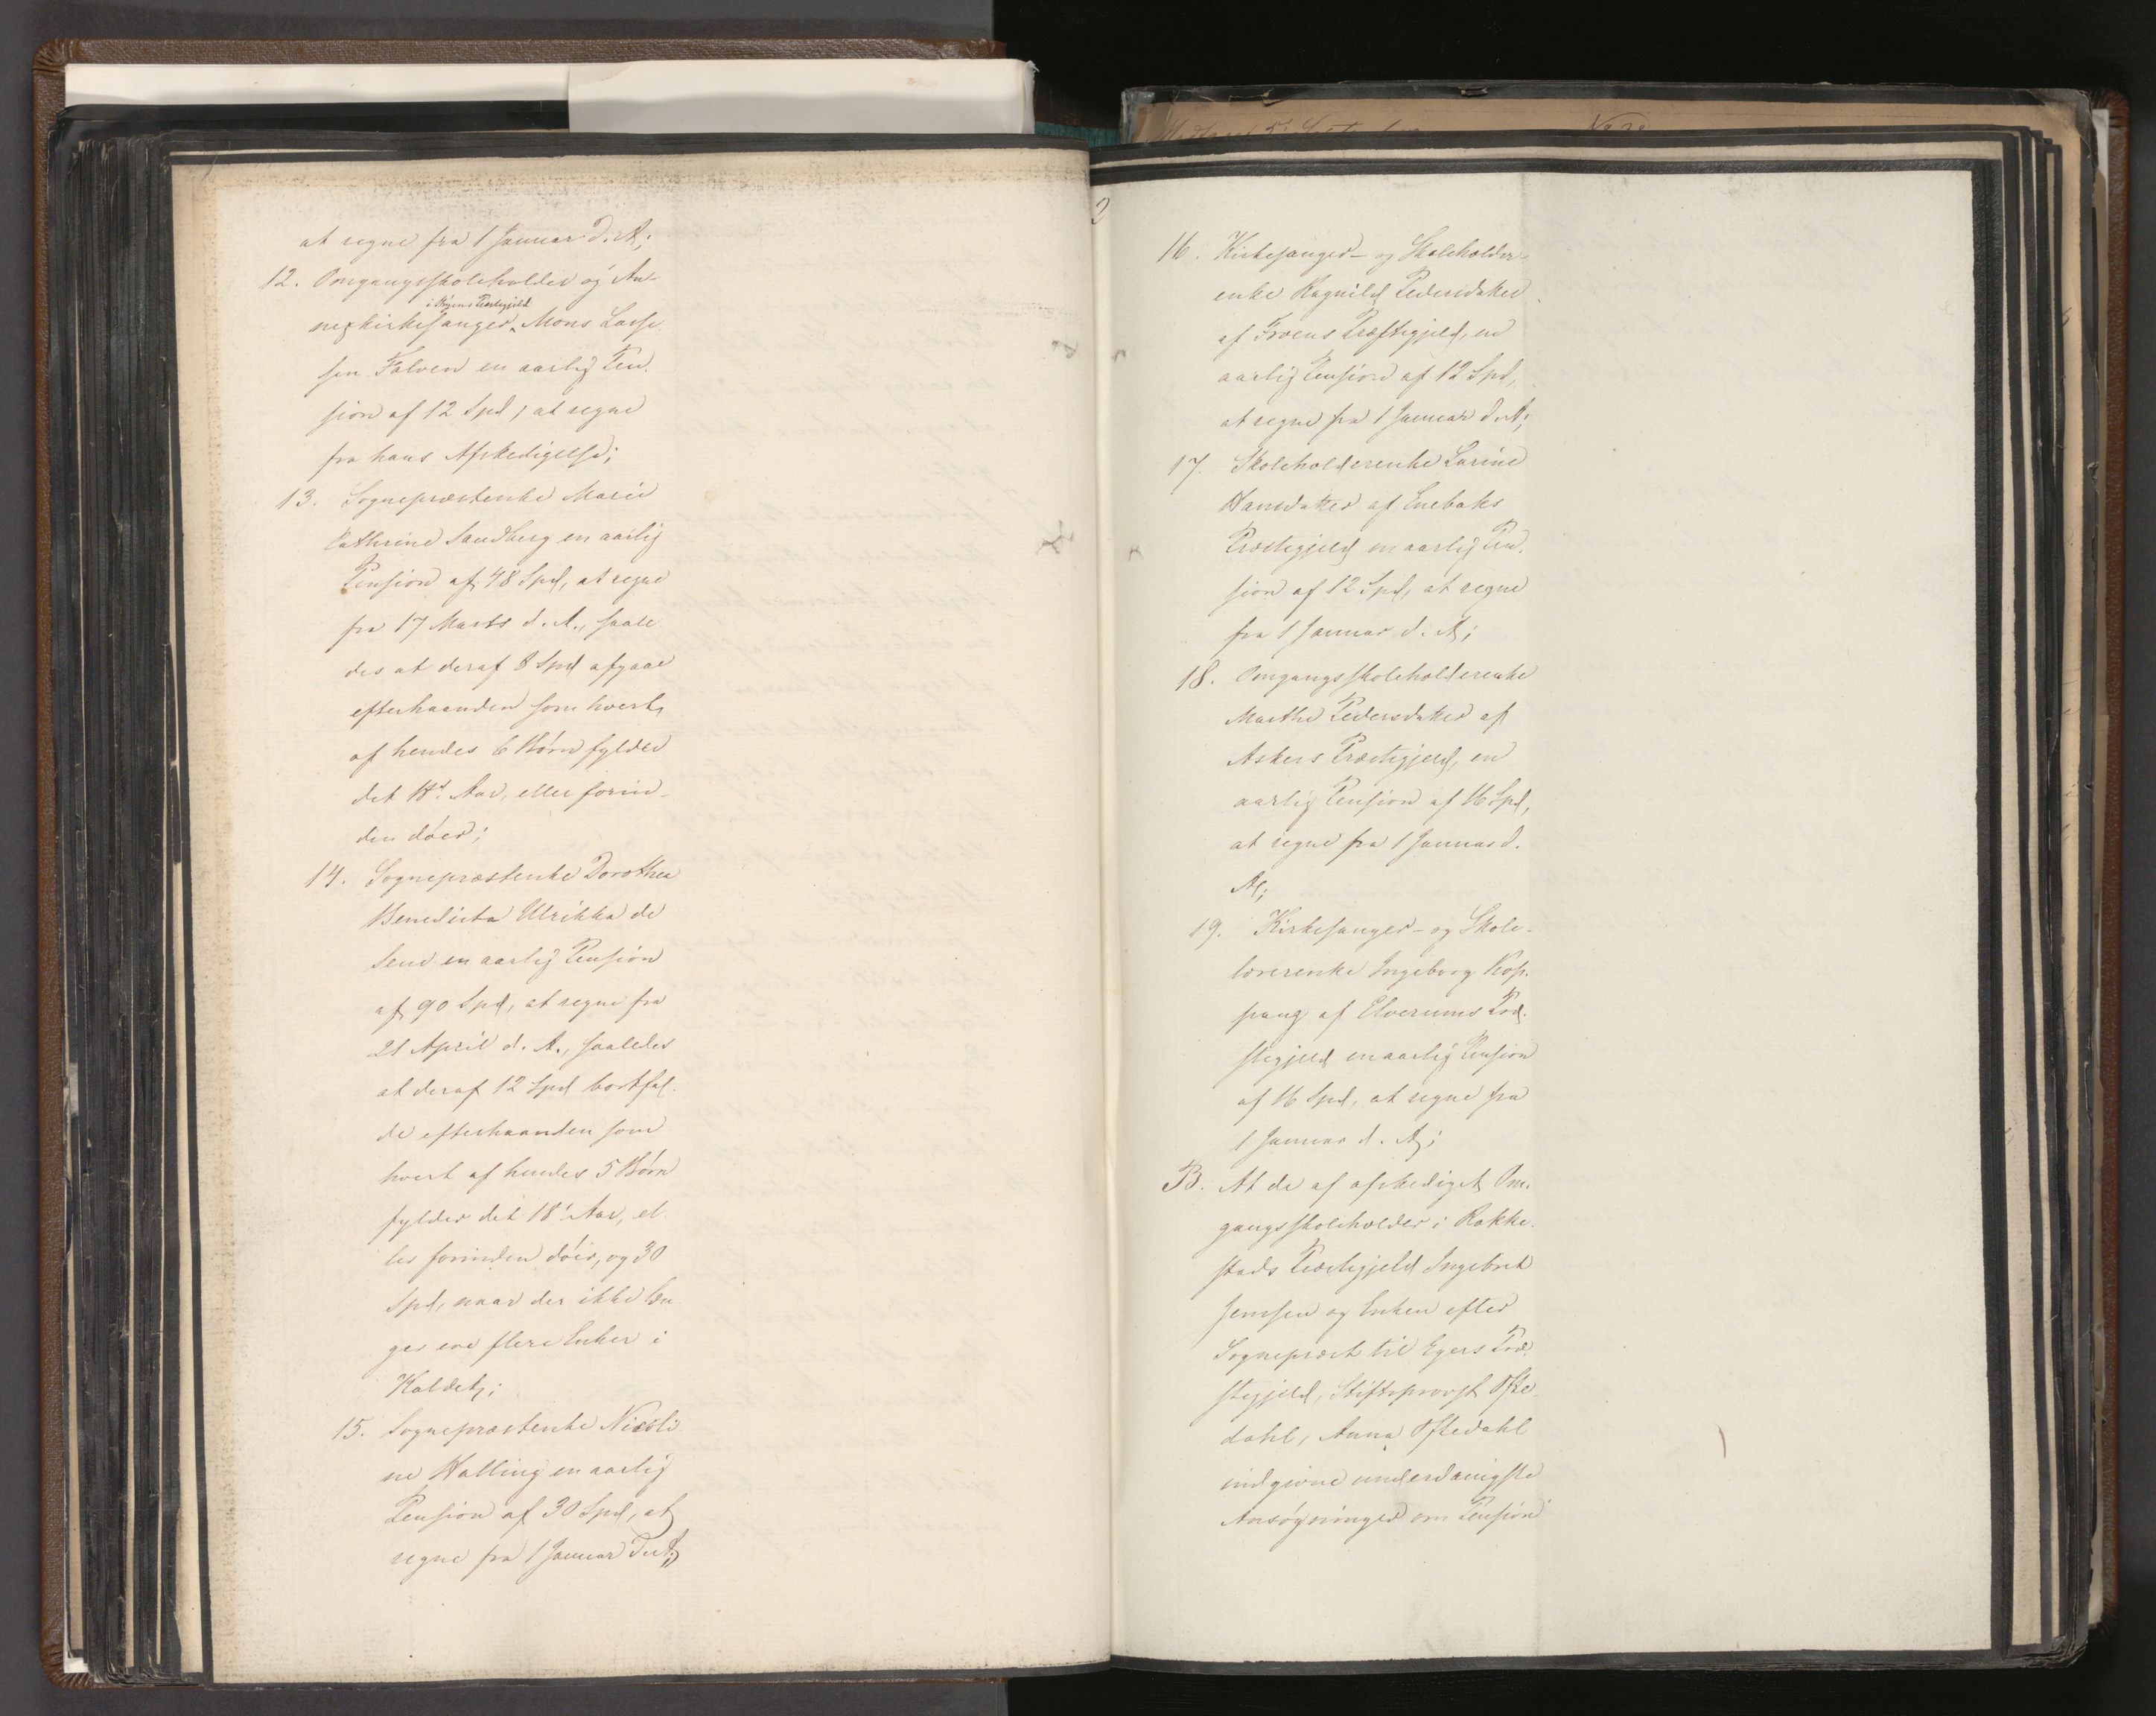 at regne fra 1 Januar d. A;
12. Omgangsskoleholder og An-
nexkirkesanger i Øiens Præstegjeld Mons Lasse
sen Folven en aarlig Pen-
sion af 12 Spd, at regne
fra hans Afskedigelse;
13. Sognepræstenke Marie
Cathrine Sandberg en aarlig
Pension af 48 Spd, at regne
fra 17 Marts d. A., saale
des at deraf 8 Spd afgaae
efterhaanden som hvert
af hendes 6 Børn fylder
det 18de Aar, eller forin-
den døer;
14. Sognepræstenke Dorothea
Benedicta Ulrikka de
Seue en aarlig Pension
af 90 Spd, at regne fra
21 April d. A., saaledes
at deraf 12 Spd bortfal-
de efterhaanden som
hvert af hendes 5 Børn
fylder det 18de Aar, el-
ler forinden døer, og 30
Spd, naar der ikke læn
ger ere flere Enker i
Kaldet;
15. Sognepræstenke Nicoli
ne Halling en aarlig
Pension af 30 Spd, at
regne fra 1 Januar d. A;
2
16. Kirkesanger- og Skoleholder-
enke Ragnild Pedersdatter
af Froens Præstegjeld, en
aarlig Pension af 12 Spd,
at regne fra 1 Januar d. A;
17. Skoleholderenke Karine
Hansdatter af Enebaks
Præstegjeld en aarlig Pen-
sion af 12 Spd, at regne
fra 1 Januar d. A;
18. Omgangsskoleholderenke
Marthe Pedersdatter af
Askers Præstegjeld, en
aarlig Pension af 16 Spd,
at regne fra 1 Januar d.
A;
19. Kirkesanger- og Skole-
lærerenke Ingeborg Kop-
pang af Elverums Præ-
stegjeld en aarlig Pension
af 16 Spd, at regne fra
1 Januar d. A;
B. At de af afskediget Om-
gangsskoleholder i Rakke-
stads Præstegjeld Ingebret
Jensen og Enken efter
Sognepræst til Egers Præ-
stegjeld, Stiftsprovst Ofte-
dahl, Anna Oftedahl
indgivne underdanigste
Ansøgninger om Pension